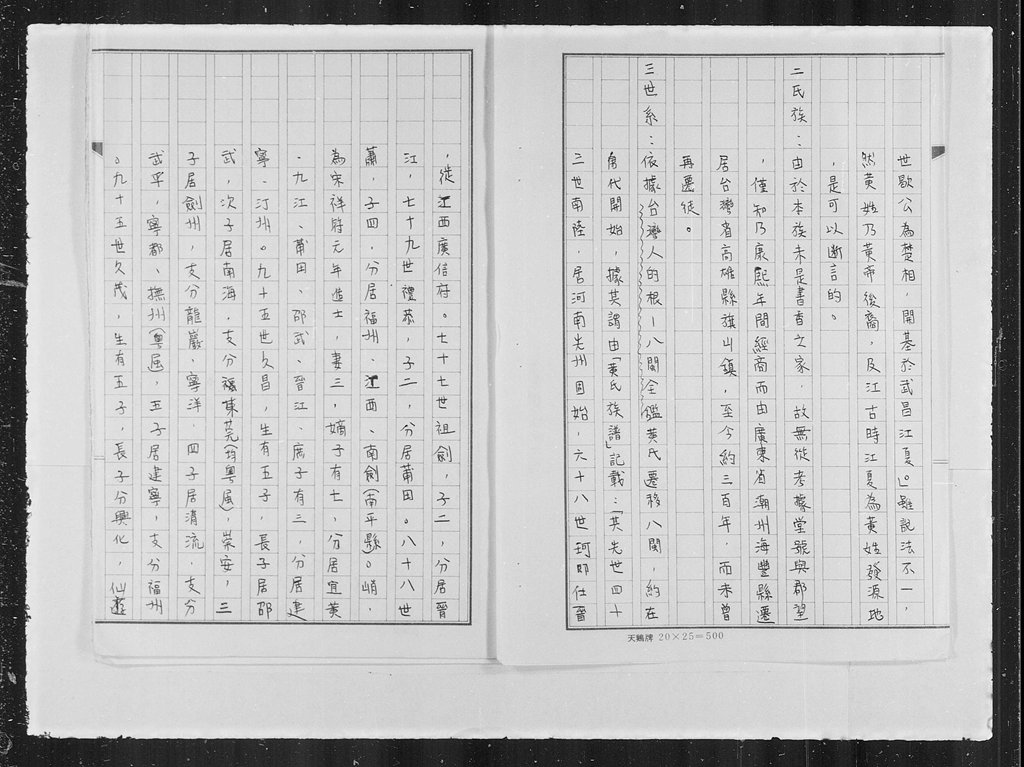 世歇公為楚相，開基於武昌江夏」。雖說法不一，
然黃姓乃黃帝後裔，及江古時江夏為黃姓發源地
，是可以斷言的。
二氏族：由於本族未是書香之家，故無從考據堂號與郡望
，僅知乃康熙年間經商而由廣東省潮州海豐縣遷
居台灣省高雄縣旗山鎮，至今約三百年，而未曾
再遷徒。
三世系：依據台灣人的根－八閩全鑑黃氏遷移八閩，約在
唐代開始，據其謂由「黃氏族譜」記載：「其先世四十
三世南陸，居河南光州固始，六十八世珂即仕晉
，徙江西廣信府。七十七世祖劍，子二，分居晉
江，七十九世禮恭，子二，分居莆田。八十八世
蕭，子四，分居福州、江西、南劍（南平縣）。峭，
為宋祥符元年進士，妻三，嫡子有七，分居宜黃
、九江、莆田、邵武、晉江、庶子有三，分居建
寧、汀州。九十五世久昌，生有五子，長子居邵
武，次子居南海，支分福東莞（均粵屬），崇安，三
子居劍州，支分龍巖、寧洋，四子居清流，支分
武平，寧都、撫州（粵屬），五子居建寧，支分福州
。九十五世久茂，生有五子，長子分興化，仙遊
天鵝牌 20×25=500